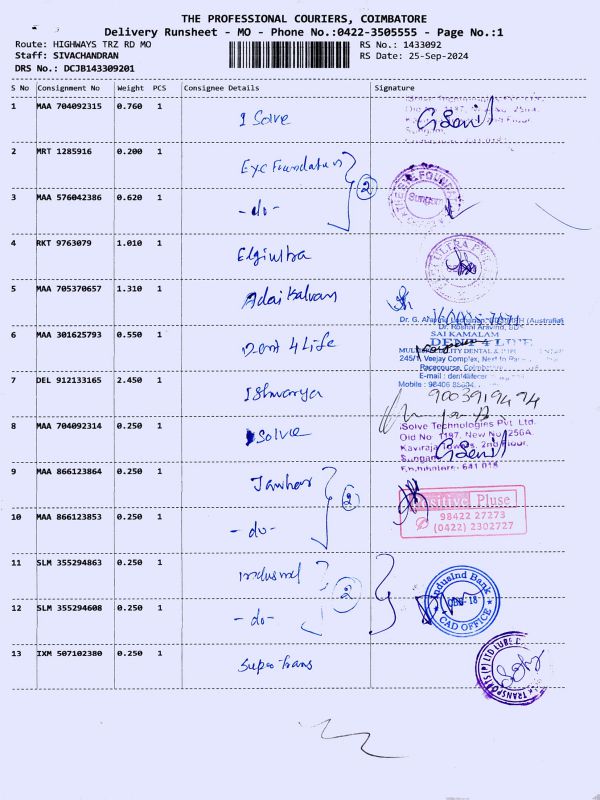 THE PROFESSIONAL COURIERS, COIMBATORE
Delivery Runsheet - MO - Phone No.:0422-3505555 - Page No.:1
Route: HIGHWAYS TRZ RD MO RS No.: 1433092
Staff: SIVACHANDRAN RS Date: 25-Sep-2024
DRS No.: DCJB143309201
S No Consignment No Weight PCS Consignee Details Signature
1 MAA 704092315 0.760 1 I Solve
2 MRT 1285916 0.200 1 Eye Foundation
3 MAA 576042386 0.620 1 -do- 2 Sungam
4 RKT 9763079 1.010 1 Elgiultra
5 MAA 705370657 1.310 1 Adaikalvan
Dr. Roshni Aravind, BDS
SAI KAMALAM
6 MAA 301625793 0.550 1 Dent 4 Life DENT 4 LIFE
245/1, Veejay Complex, Next to
Racecourse, Coimbatore
E-mail : dent4lifecer
7 DEL 912133165 2.450 1 Ishwarya Mobile : 98406
9003919494
8 MAA 704092314 0.250 1 Solve iSolve Technologies Pvt. Ltd.
Old No: 1197, New No: 256A,
Kaviraja Towers, 2nd Floor,
Sungam
Coimbatore - 641 018
9 MAA 866123864 0.250 1 Jawhar
Positive Pluse
10 MAA 866123853 0.250 1 -do- 2 98422 27273
(0422) 2302727
11 SLM 355294863 0.250 1 Indusind IndusInd Bank
12 SLM 355294608 0.250 1 -do- 2 CBE-18 CAD OFFICE
13 IXM 507102380 0.250 1 Supeo trans TRANSPORTS (P) LTD